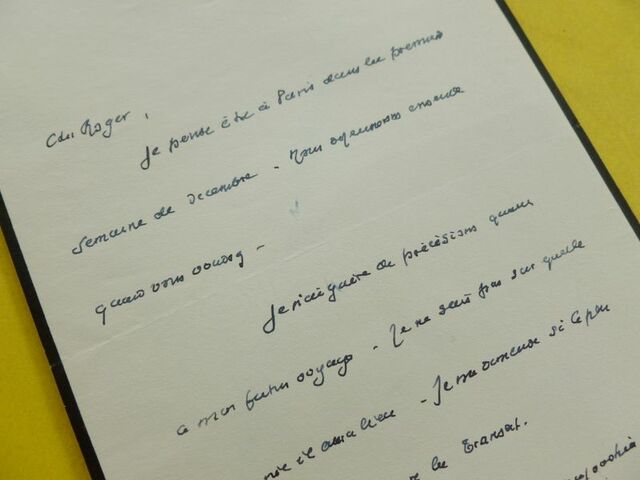 Cher Roger,
Je pense être à Paris dans la première
semaine de décembre - Nous dejeunerons ensemble
quand vous voudrez -
Je n'ai guère de précisions quant
à mon futur voyage - Je ne sais pas sur quelle
il aura lieu - Je me demande si le
la Transat.